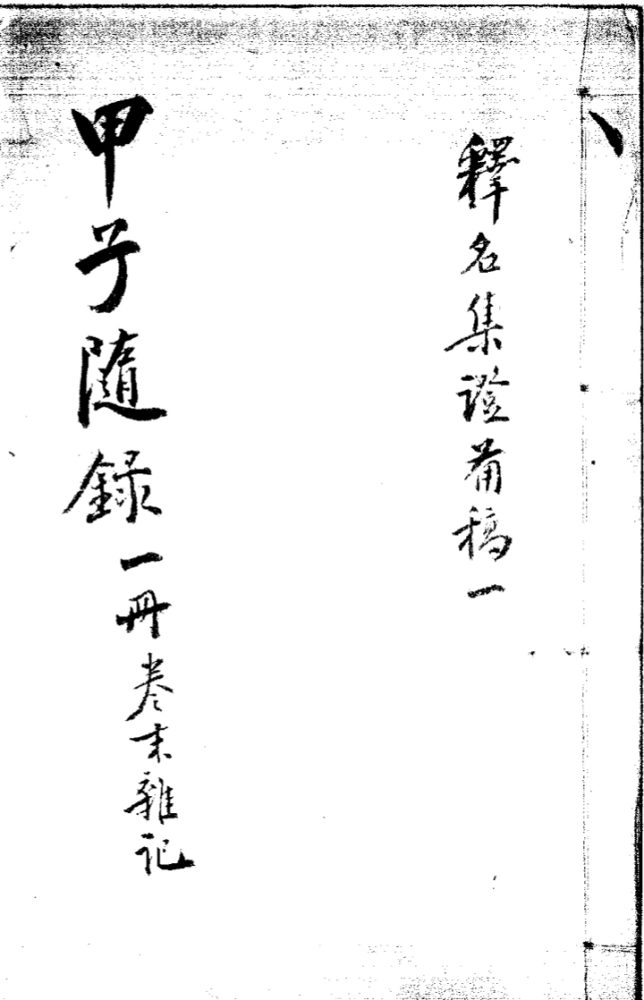 釋名集證備稿一
甲子隨錄一冊卷末雜記